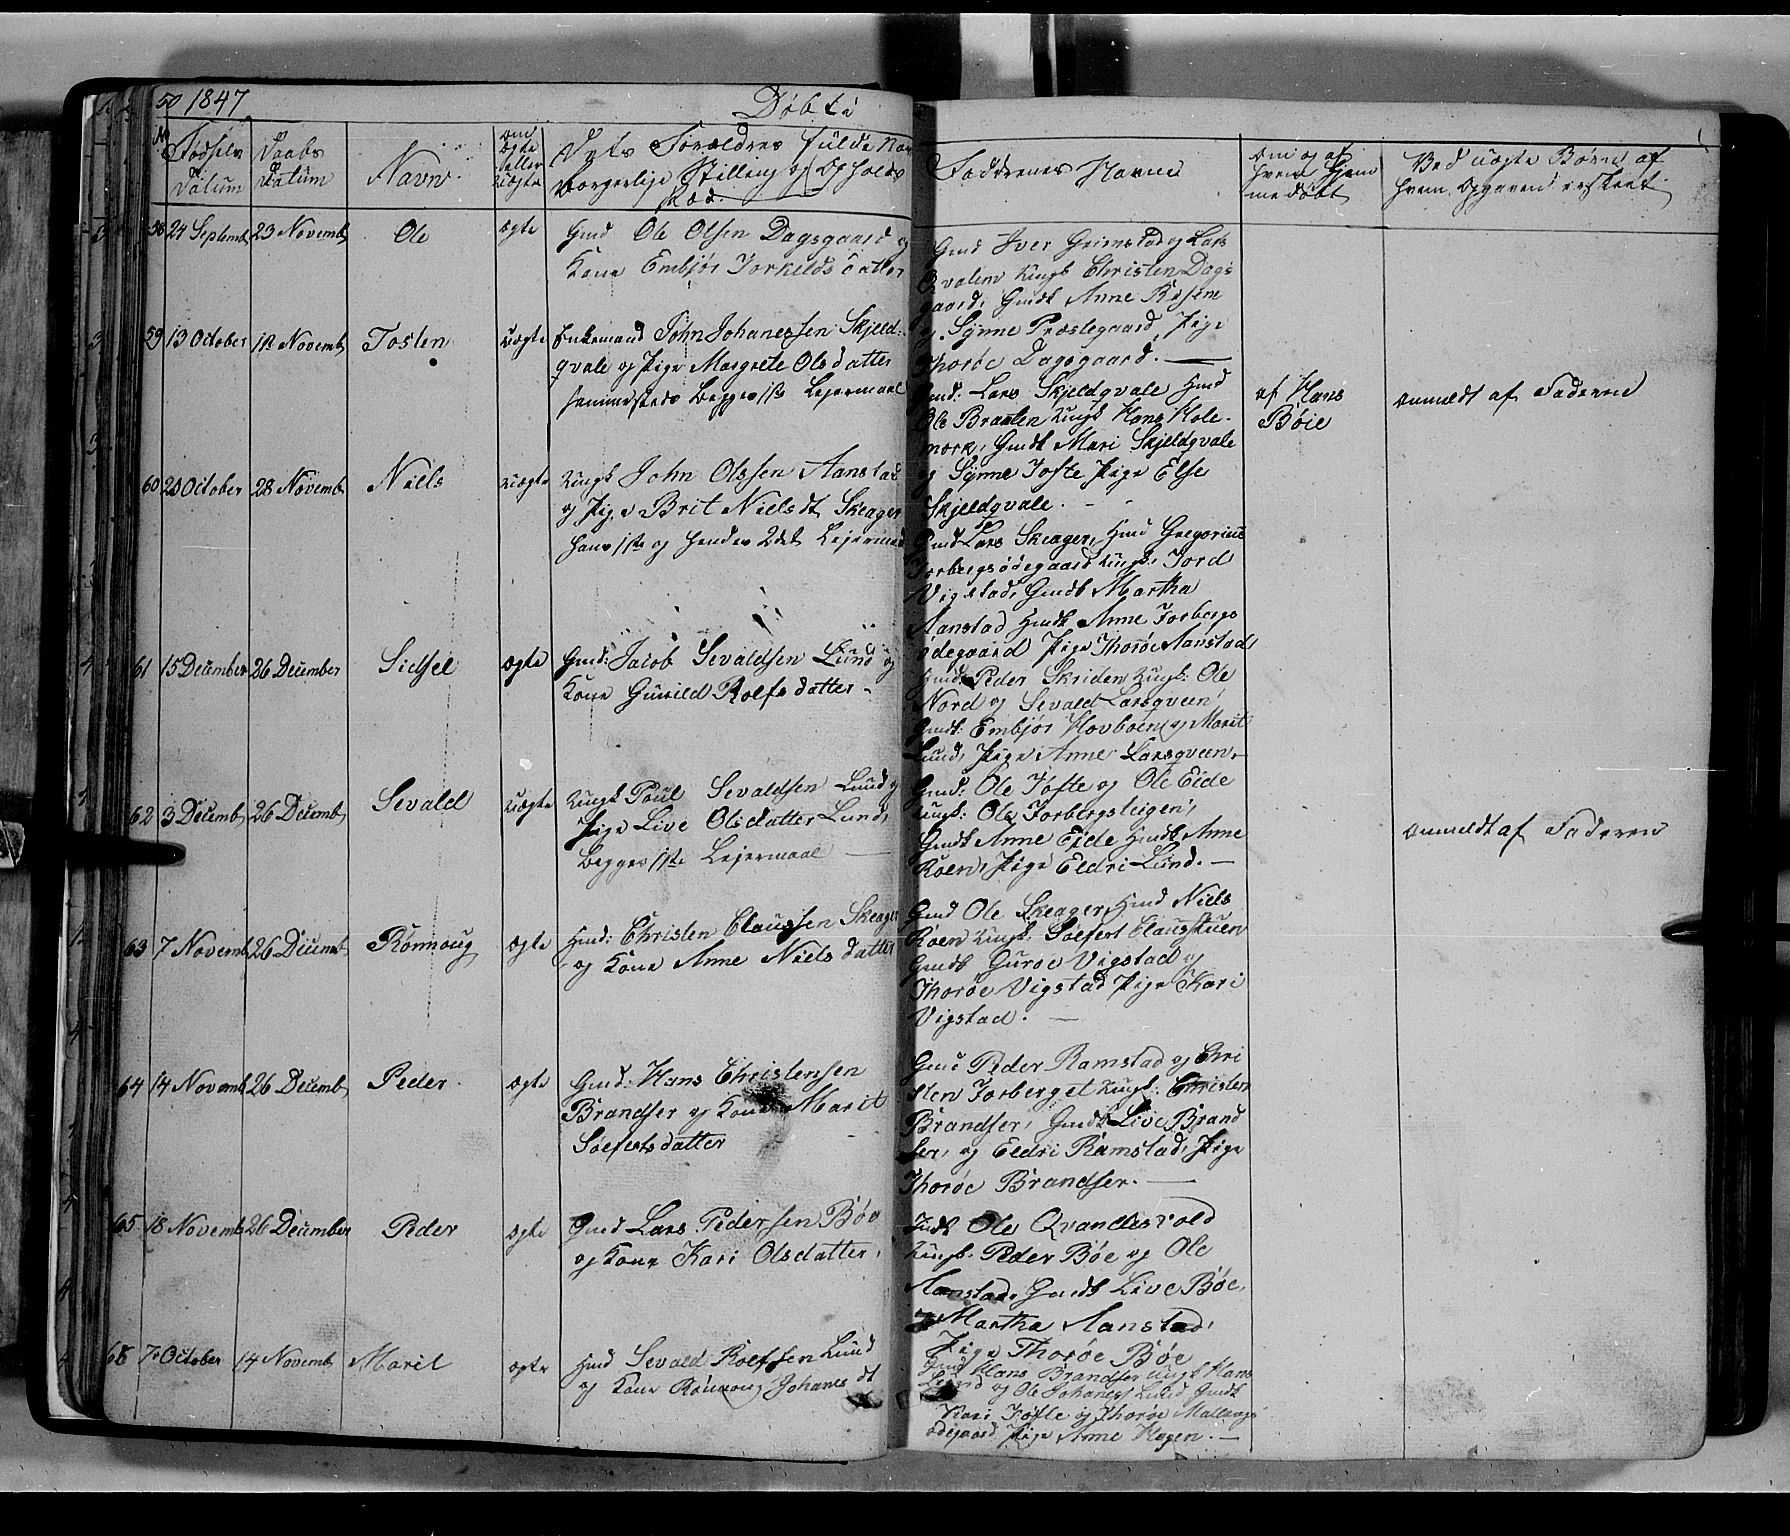 50 1847 Döbte
No Födsels Datum
Daabs Datum
Navn
om ægte eller uægte
Forældres fulde Nav
borgerlige Stilling og Opholds
Sted.
Faddernes Navne
om og af hvem hjem medöbt
Ved uægte Börn af
hvem Opgaven er skeet
58 24 Septemb 23 Novemb Ole ægte Gmd Ole Olsen Dagsgaard og
Kone Embjör Torkelds datter
Gmd Iver Grimstad og Lars
Qvalem Ungk Christen Dags
gaard, Gmdk Anne
og Synne Præstegaard, Pige
Thoröe Dagsgaard. —
59 13 October 1st Novemb Tosten uægte Enkemand John Johanessen Skjeld-
qvale og Pige Margrete Olsdatter
sammesteds Begges 1ste Lejermaal
Gmd: Lars Skjeldqvale Hmd
Ole Braaten Ungk Hans Hole-
mork, Gmdk Mari Skjeldqvale
og Synne Tofte Pige Else
Skjeldqvale.
af Hans
Böie
anmeldt af Faderen
60 20 October 28 Novemb Niels uægte Ungk John Olssen Aanstad
og Pige Brit Nielsdt Skeager
hans 1ste og hendes 2det Lejermaal
Gmd Lars Skeager, Hmd Gregorius
Forbergsödegaard Ungk: Tord
Vigstad, Gmdk Martha
Aanstad Hmdk Anne Forbergs
ödegaard Pige Thoröe Aanstad,
61 15 December 26 December Sidsel ægte Gmd: Jacob Sevaldsen Lund og
Kone Gunild Rolfsdatter.
Gmd Peder Skriden Ungk: Ole
Nord og Sevald Larsqveen,
Gmdk: Embjör Hovboen og Marit
Lund, Pige Anne Larsqveen,
62 3 Decemb 26 Decemb Sevald uægte Ungk Poul Sevaldsen Lund og
Pige Live Olsdatter Lund,
Begges 1ste Lejermaal —
Gmd: Ole Tofte og Ole Eide
Ungk: Ole Forbergsteigen,
Gmdk Anne Eide Hmdk Anne
Roen, Pige Eldri Lund. —
anmeldt af Faderen
63 7 Novemb 26 Decemb Rönnoug ægte Hmd: Christen Claussen Skeager
og Kone Anne Niels datter
Gmd Ole Skeager, Hmd Niels
Roen Ungk: Soefert Claustuen
Gmdk Guroe Vigstad og
Thoröe Vigstad Pige Kari
Vigstad. —
64 14 Novemb 26 Decemb Peder ægte Gmd: Hans Christensen
Brandser og Kone Marit
Soefertsdatter
Gmd Peder Ramstad og Chri
sten Forberget Ungk: Christen
Brandser, Gmdk Live Brand
ser, og Eldri Ramstad, Pige
Thoröe Brandser. —
65 18 Novemb 26 December Peder ægte Gmd Lars Pedersen Böe
og Kone Kari Olsdatter,
Ole Qvandesvold
Ungk: Peder Böe og Ole
Aanstad, Gmdk Live Böe,
og Martha Aanstad,
Pige Thoröe Böe
66 7 October 14 Novemb Marit ægte Hmd Sevald Rolfsen Lund
og Kone Rönnoug Johanes dt
Gmd Hans Brandser Ungk Hans
Lund og Ole Johaness Lund Gmdk
Kari Tofte og Thoröe Mallangs
ödegaard Pige Anne Hagen. —